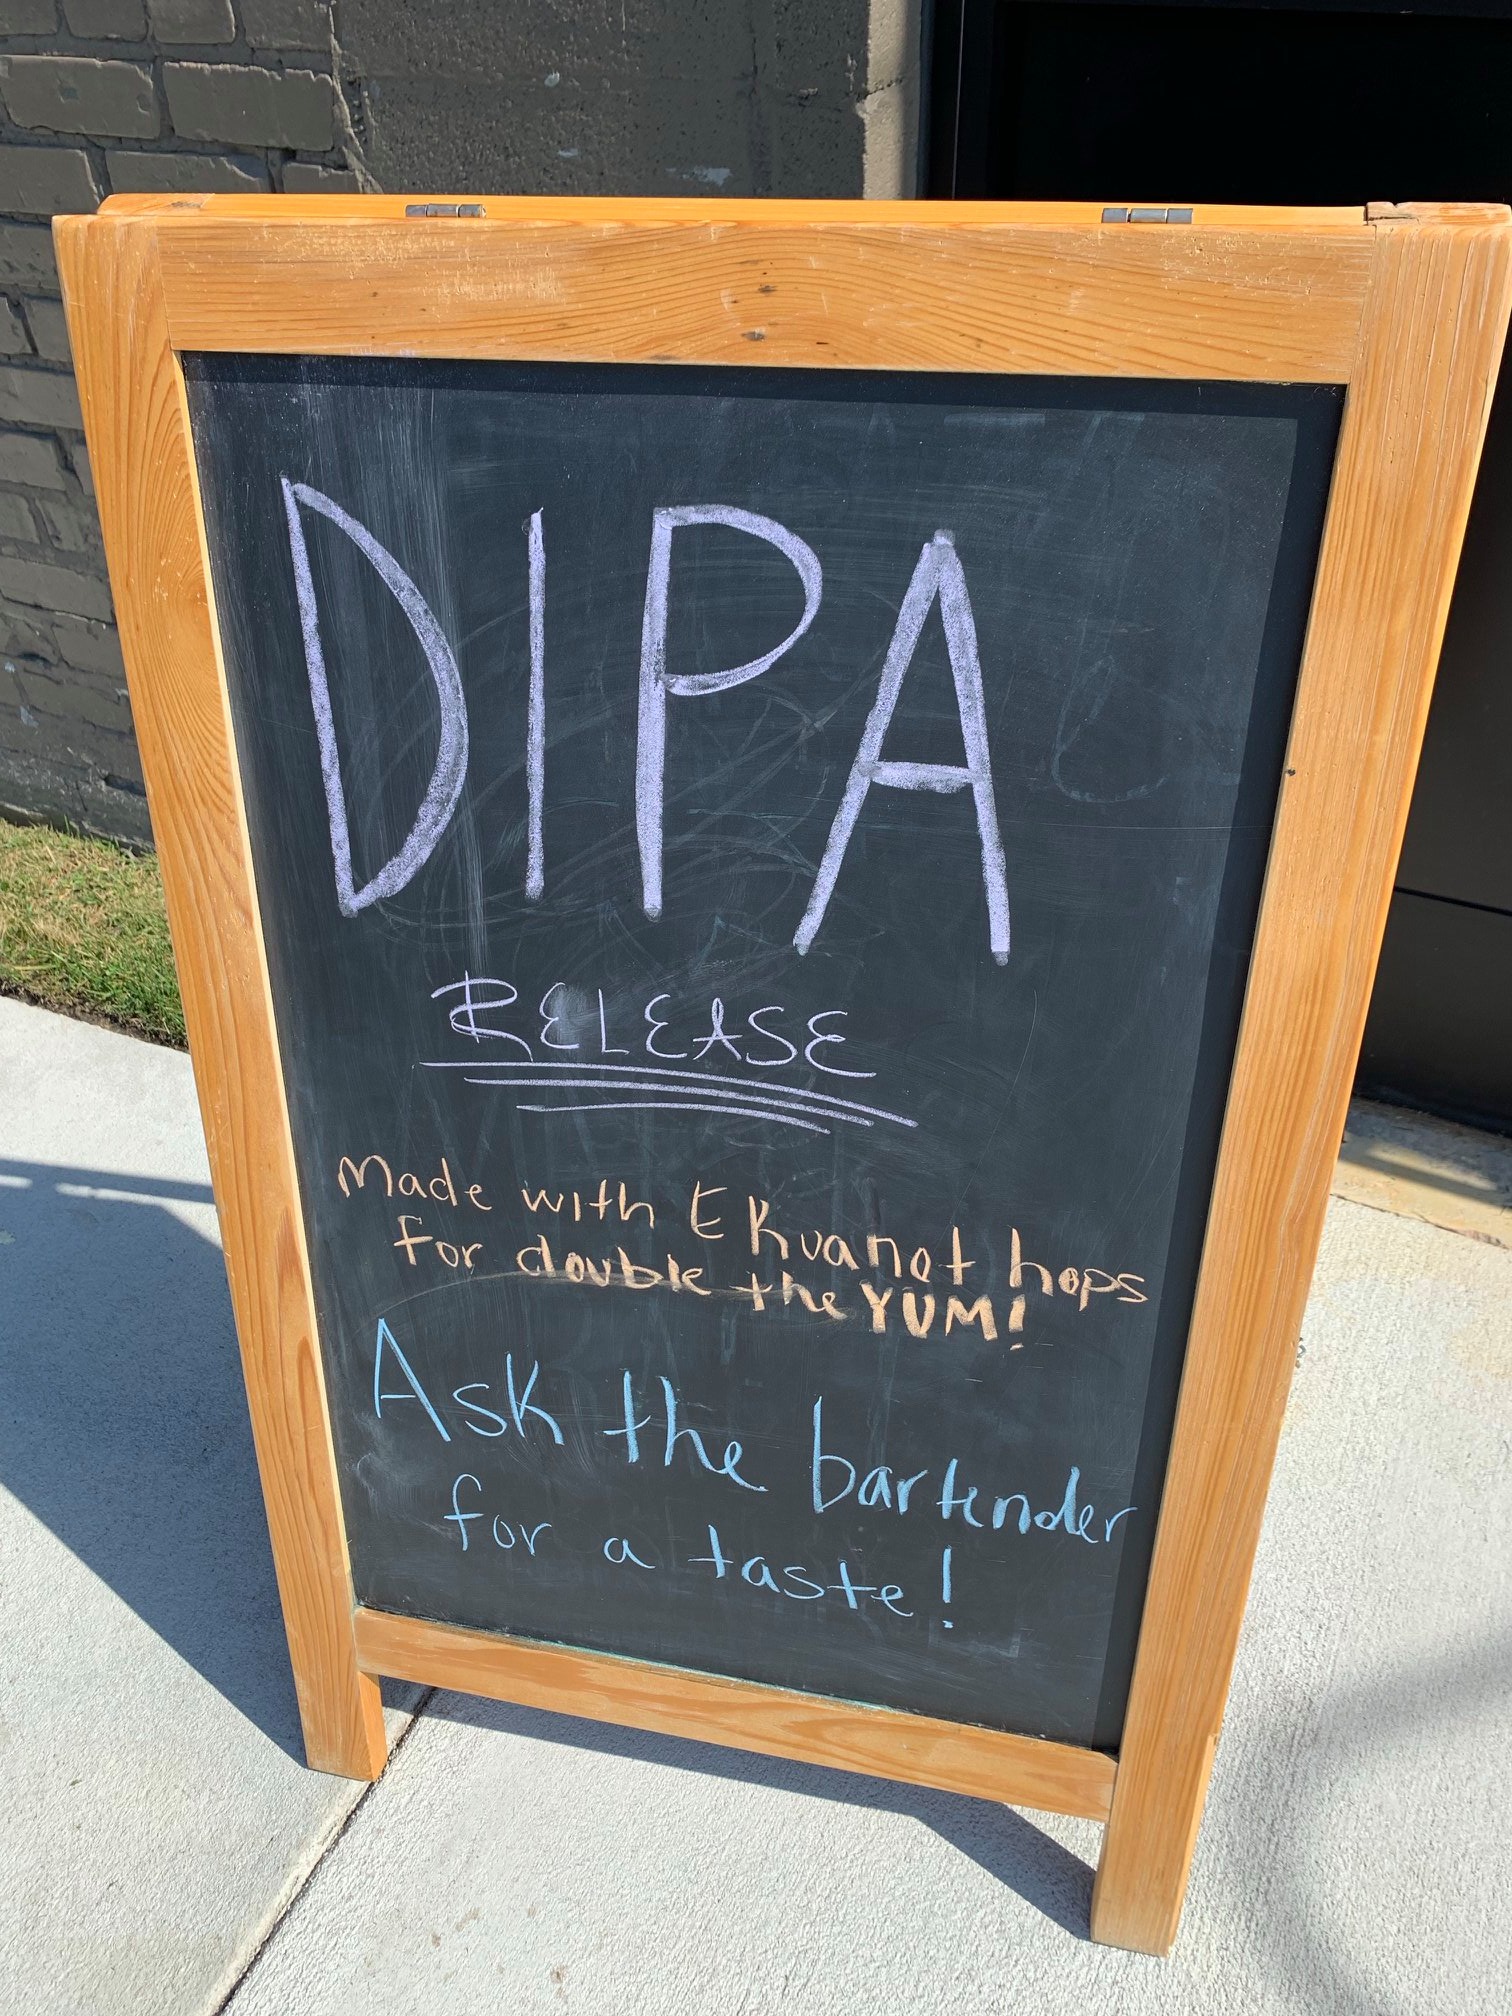 DIPA
RELEASE
Made with EKuanot hops
for double the YUM!
Ask the bartender
for a taste!